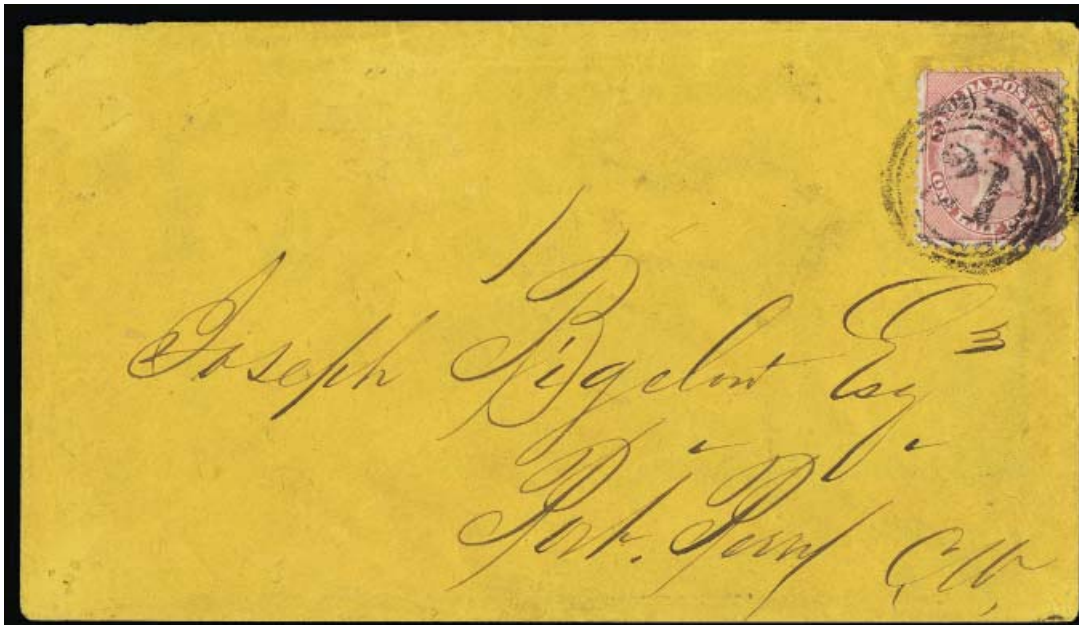 CANADA POSTAGE
21
Joseph Bigelow Esqr
Port. Perry
C.W.